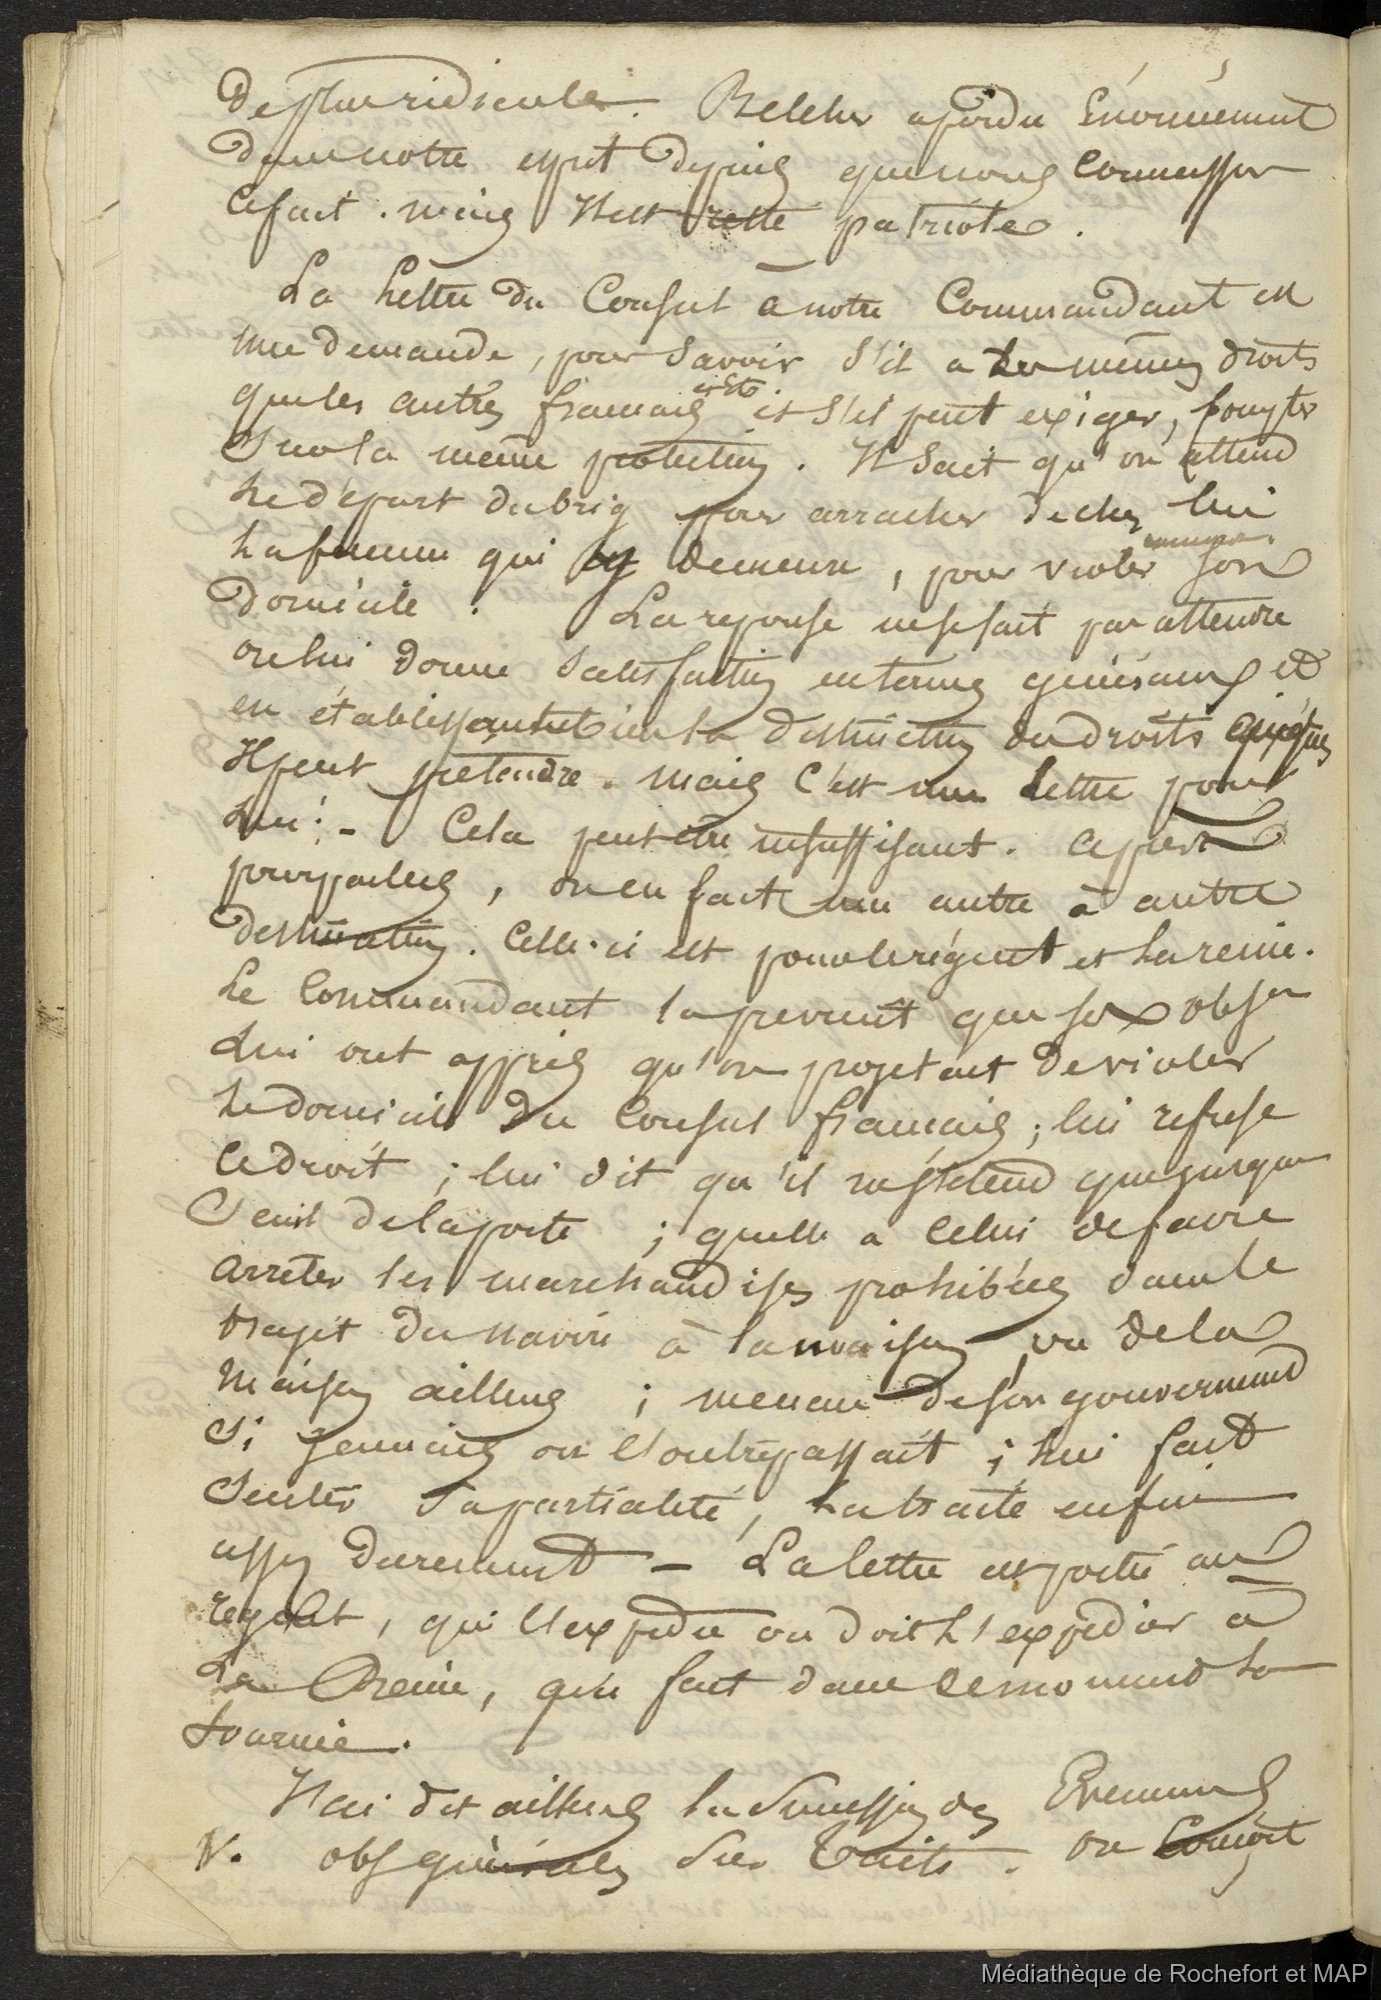 de plus ridicule. Belcher a perdu énormément
dans notre esprit depuis que nous connaissons
ce fait. mais Il est resté patriote.
La lettre du Consul à notre Commandant est
une demande, pour savoir s'il a les mêmes droits
que les autres français et s'il peut exiger, compter
sur la même protection. Il sait qu'on attend
le départ du brig pour arracher de chez lui
la femme qui y demeure, pour violer son
domicile. La reponse ne se fait pas attendre
on lui donne satisfaction en termes généraux et
en établissant bien la distinction des droits auxquels
Il peut prétendre. mais c'est une lettre pour
lui. - Cela peut être insuffisant. après
pourparlers, on en fait une autre à autre
destination. Celle-ci est pour le régent et la reine.
Le Commandant la prévient que ses obsons
lui ont appris qu'on projetait de violer
le domicile du Consul français; lui refuse
ce droit; lui dit qu'il ne s'étend que jusqu'au
seuil de la porte; qu'elle a celui de faire
arrêter les marchandises prohibées dans le
trajet du navire à la maison, ou de la
maison ailleurs; menace de son gouvernement
si jamais on l'outrepassait; lui fait
sentir sa partialité, la traite enfin
assez durement - La lettre est portée au
regent, qui l'expédie ou doit l'expédier à
la Reine, qui fait dans ce moment sa
tournée.
J'ai dit ailleurs la succession des Evenemens
V. obs générales sur Taïti. on conçoit
Médiathèque de Rochefort et MAP